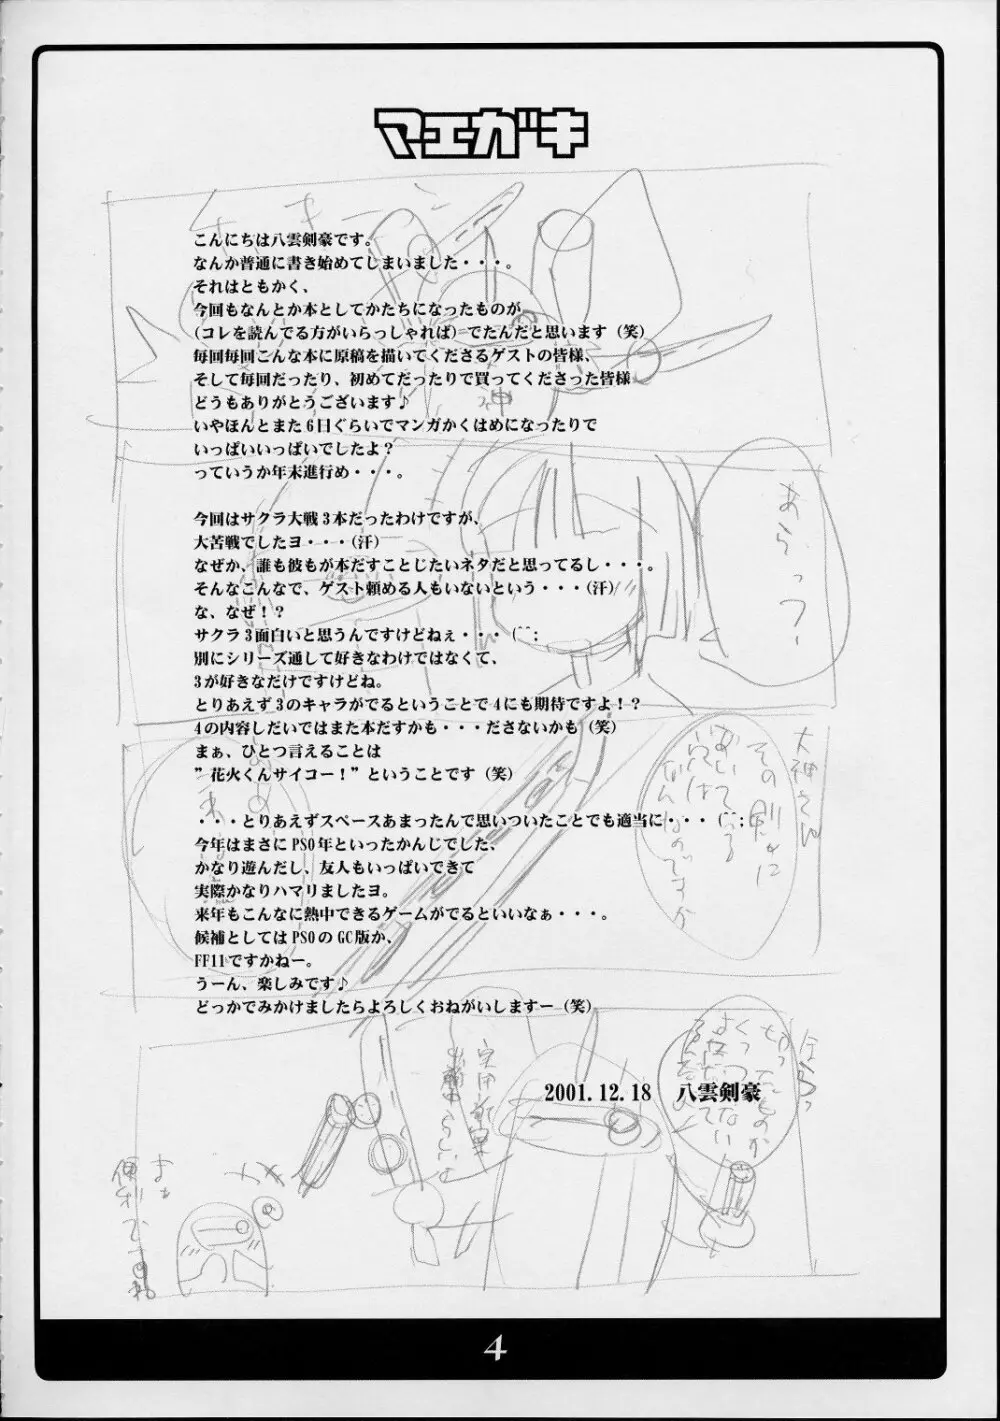 マエガキ
こんにちは八雲剣豪です。
なんか普通に書き始めてしまいました・・・。
それはともかく、
今回もなんとか本としてかたちになったものが
(コレを読んでる方がいらっしゃれば) でたんだと思います (笑)
毎回毎回こんな本に原稿を描いてくださるゲストの皆様、
そして毎回だったり、初めてだったりで買ってくださった皆様
どうもありがとうございます♪
いやほんとまた6日ぐらいでマンガかくはめになったりで
いっぱいいっぱいでしたよ？
っていうか年末進行め・・・。
今回はサクラ大戦3本だったわけですが、
大苦戦でしたヨ・・・(汗)
なぜか、誰も彼もが本だすことじたいネタだと思ってるし・・・。
そんなこんなで、ゲスト頼める人もいないという・・・(汗)
な、なぜ！？
サクラ3面白いと思うんですけどねぇ・・・ (^^;
別にシリーズ通して好きなわけではなくて、
3が好きなだけですけどね。
とりあえず3のキャラがでるということで4にも期待ですよ！？
4の内容しだいではまた本だすかも・・・ださないかも (笑)
まぁ、ひとつ言えることは
”花火くんサイコー！”ということです (笑)
・・・とりあえずスペースあまったんで思いついたことでも適当に・・・ (^^;
今年はまさにPSO年といったかんじでした、
かなり遊んだし、友人もいっぱいできて
実際かなりハマりましたヨ。
来年もこんなに熱中できるゲームがでるといいなぁ・・・。
候補としてはPSOのGC版か、
FF11ですかねー。
うーん、楽しみです♪
どっかでみかけましたらよろしくおねがいしますー (笑)
2001.12.18 八雲剣豪
あらっ
大神さん
その剣に
あいている
穴は
なんなのですか
4